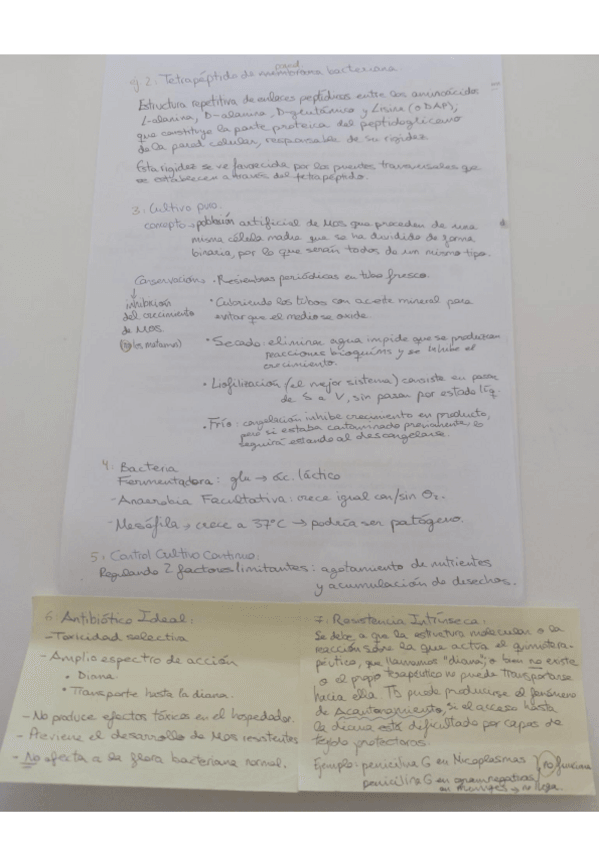 2. Tetrapéptido de membrana bacteriana.
pared
Estructura repetitiva de enlaces peptídicos entre los aminoácidos
L-alanina, D-alanina, D-glutámico y Lisina (o DAP),
que constituye la parte proteica del peptidoglicano
de la pared celular, responsable de su rigidez.
Esta rigidez se ve favorecida por los puentes transversales que
se establecen a través del tetrapéptido.
3. Cultivo puro.
concepto → población artificial de MOs que proceden de una
misma célula madre que se ha dividido de forma
binaria, por lo que serán todos de un mismo tipo.
Conservación - Resiembras periódicas en tubo fresco.
inhibición
del crecimiento
de MOS
(no los matamos)
• Cubriendo los tubos con aceite mineral para
evitar que el medio se oxide.
• Secado: eliminar agua impide que se produzcan
reacciones bioquíms y se inhibe el
crecimiento.
• Liofilización (el mejor sistema) consiste en pasar
de S a V, sin pasar por estado líq.
• Frío: congelación inhibe crecimiento en producto,
pero si estaba contaminado previamente lo
seguirá estando al descongelarse.
4. Bacteria
Fermentadora: glu → ác. láctico
- Anaerobia Facultativa: crece igual con/sin O2.
- Mesófila → crece a 37°C → podría ser patógeno.
5. Control Cultivo Continuo.
Regulando 2 factores limitantes: agotamiento de nutrientes
y acumulación de desechos.
6. Antibiótico Ideal:
- Toxicidad selectiva
- Amplio espectro de acción
• Diana
• Transporte hasta la diana.
- No produce efectos tóxicos en el hospedador.
- Previene el desarrollo de MOs resistentes
- No afecta a la flora bacteriana normal.
7. Resistencia Intrínseca:
Se debe a que la estructura molecular o la
reacción sobre la que actúa el quimiotera-
péutico, que llamamos "diana", o bien no existe
o el propio terapéutico no puede transportarse
hacia ella. Tb puede producirse el fenómeno
de Acantonamiento, si el acceso hasta
la diana está dificultado por capas de
tejido protectoras.
Ejemplo: penicilina G en Micoplasmas
no funciona
penicilina G en gramnegativas
en meninges → no llega.